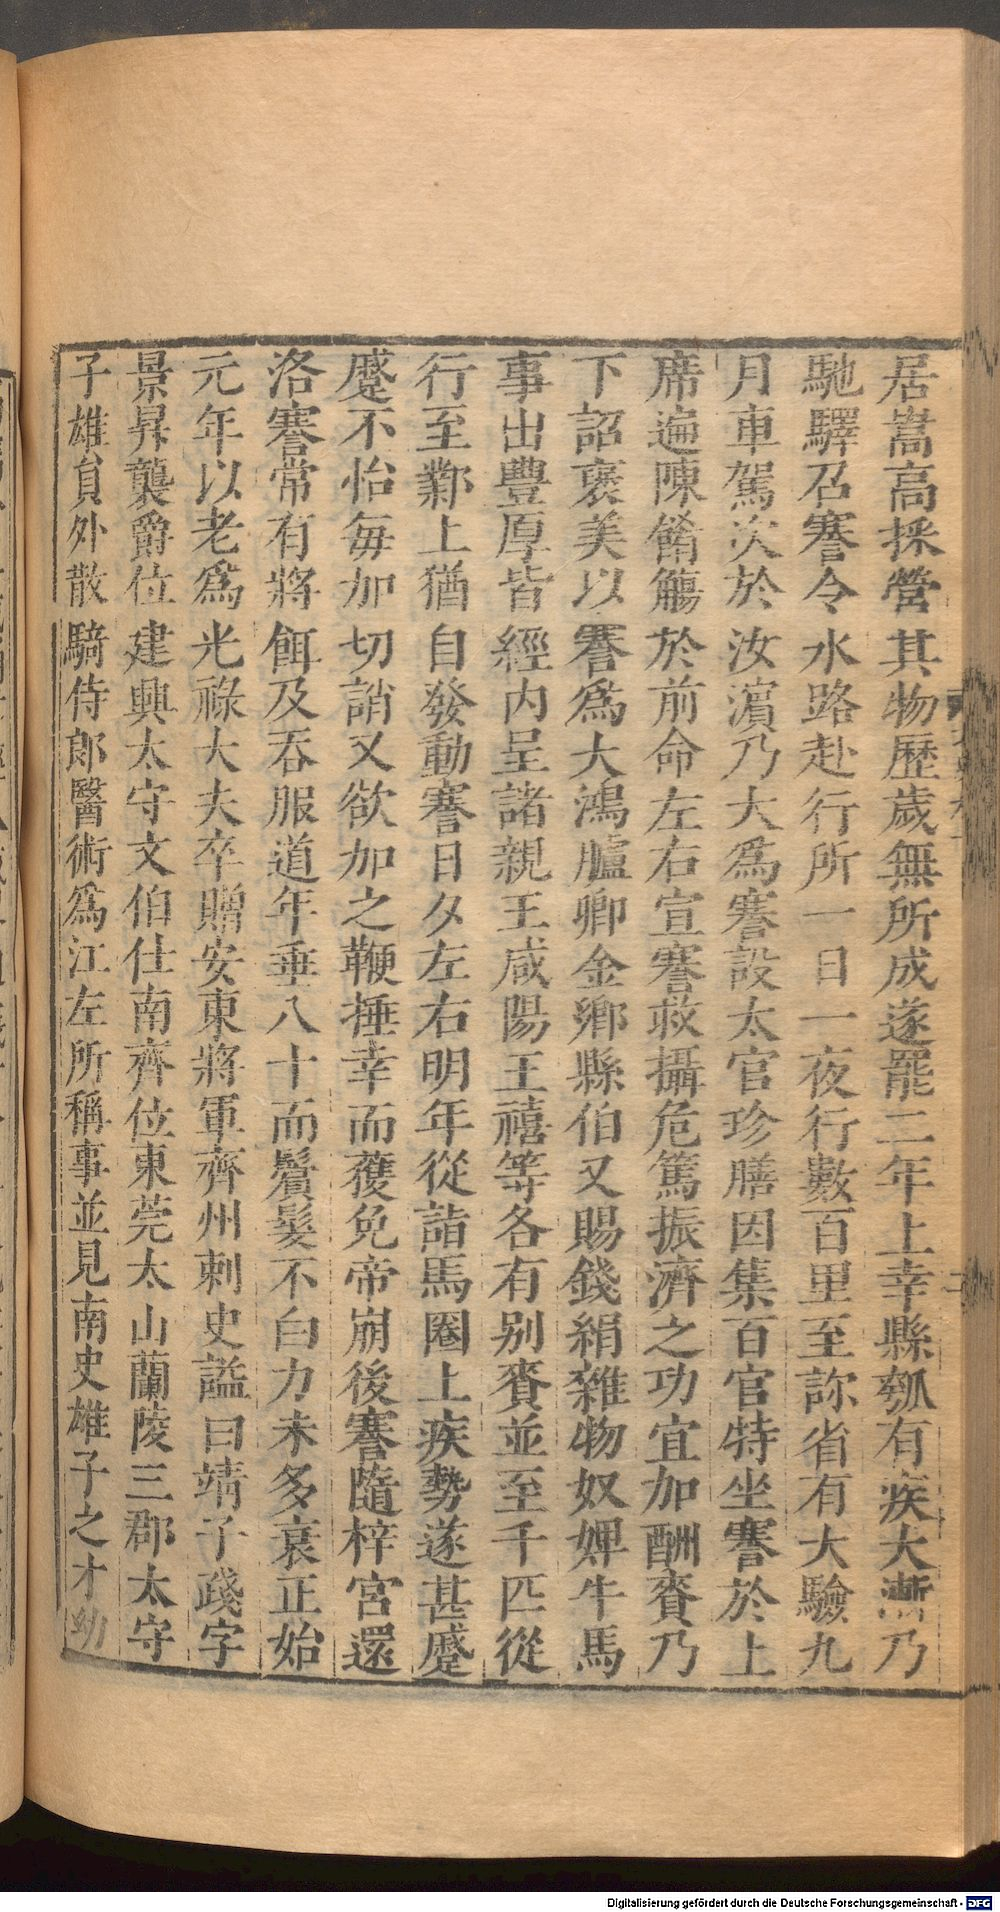 居嵩高採營其物歷歲無所成遂罷二年上幸縣瓠有疾大漸乃
馳驛召謇令水路赴行所一日一夜行數百里至診省有大驗九
月車駕次於汝濵乃大爲謇設太官珍膳因集百官特坐謇於上
席遍陳餚觴於前命左右宣謇救攝危篤振濟之功宜加酬賚乃
下詔褒美以謇爲大鴻臚卿金鄉縣伯又賜錢絹雜物奴婢牛馬
事出豐厚皆經内呈諸親王咸陽王禧等各有别賚並至千匹從
行至鄴上猶自發動謇日夕左右明年從詣馬圈上疾勢遂甚蹙
蹙不怡每加切誚又欲加之鞭捶幸而獲免帝崩後謇隨梓宮還
洛謇常有將餌及吞服道年垂八十而鬢髮不白力未多衰正始
元年以老爲光祿大夫卒贈安東將軍齊州刺史謚曰靖子踐字
景昇襲爵位建興太守文伯仕南齊位東莞太山蘭陵三郡太守
子雄員外散騎侍郎醫術爲江左所稱事並見南史雄子之才幼
Digitalisierung gefördert durch die Deutsche Forschungsgemeinschaft - DFG